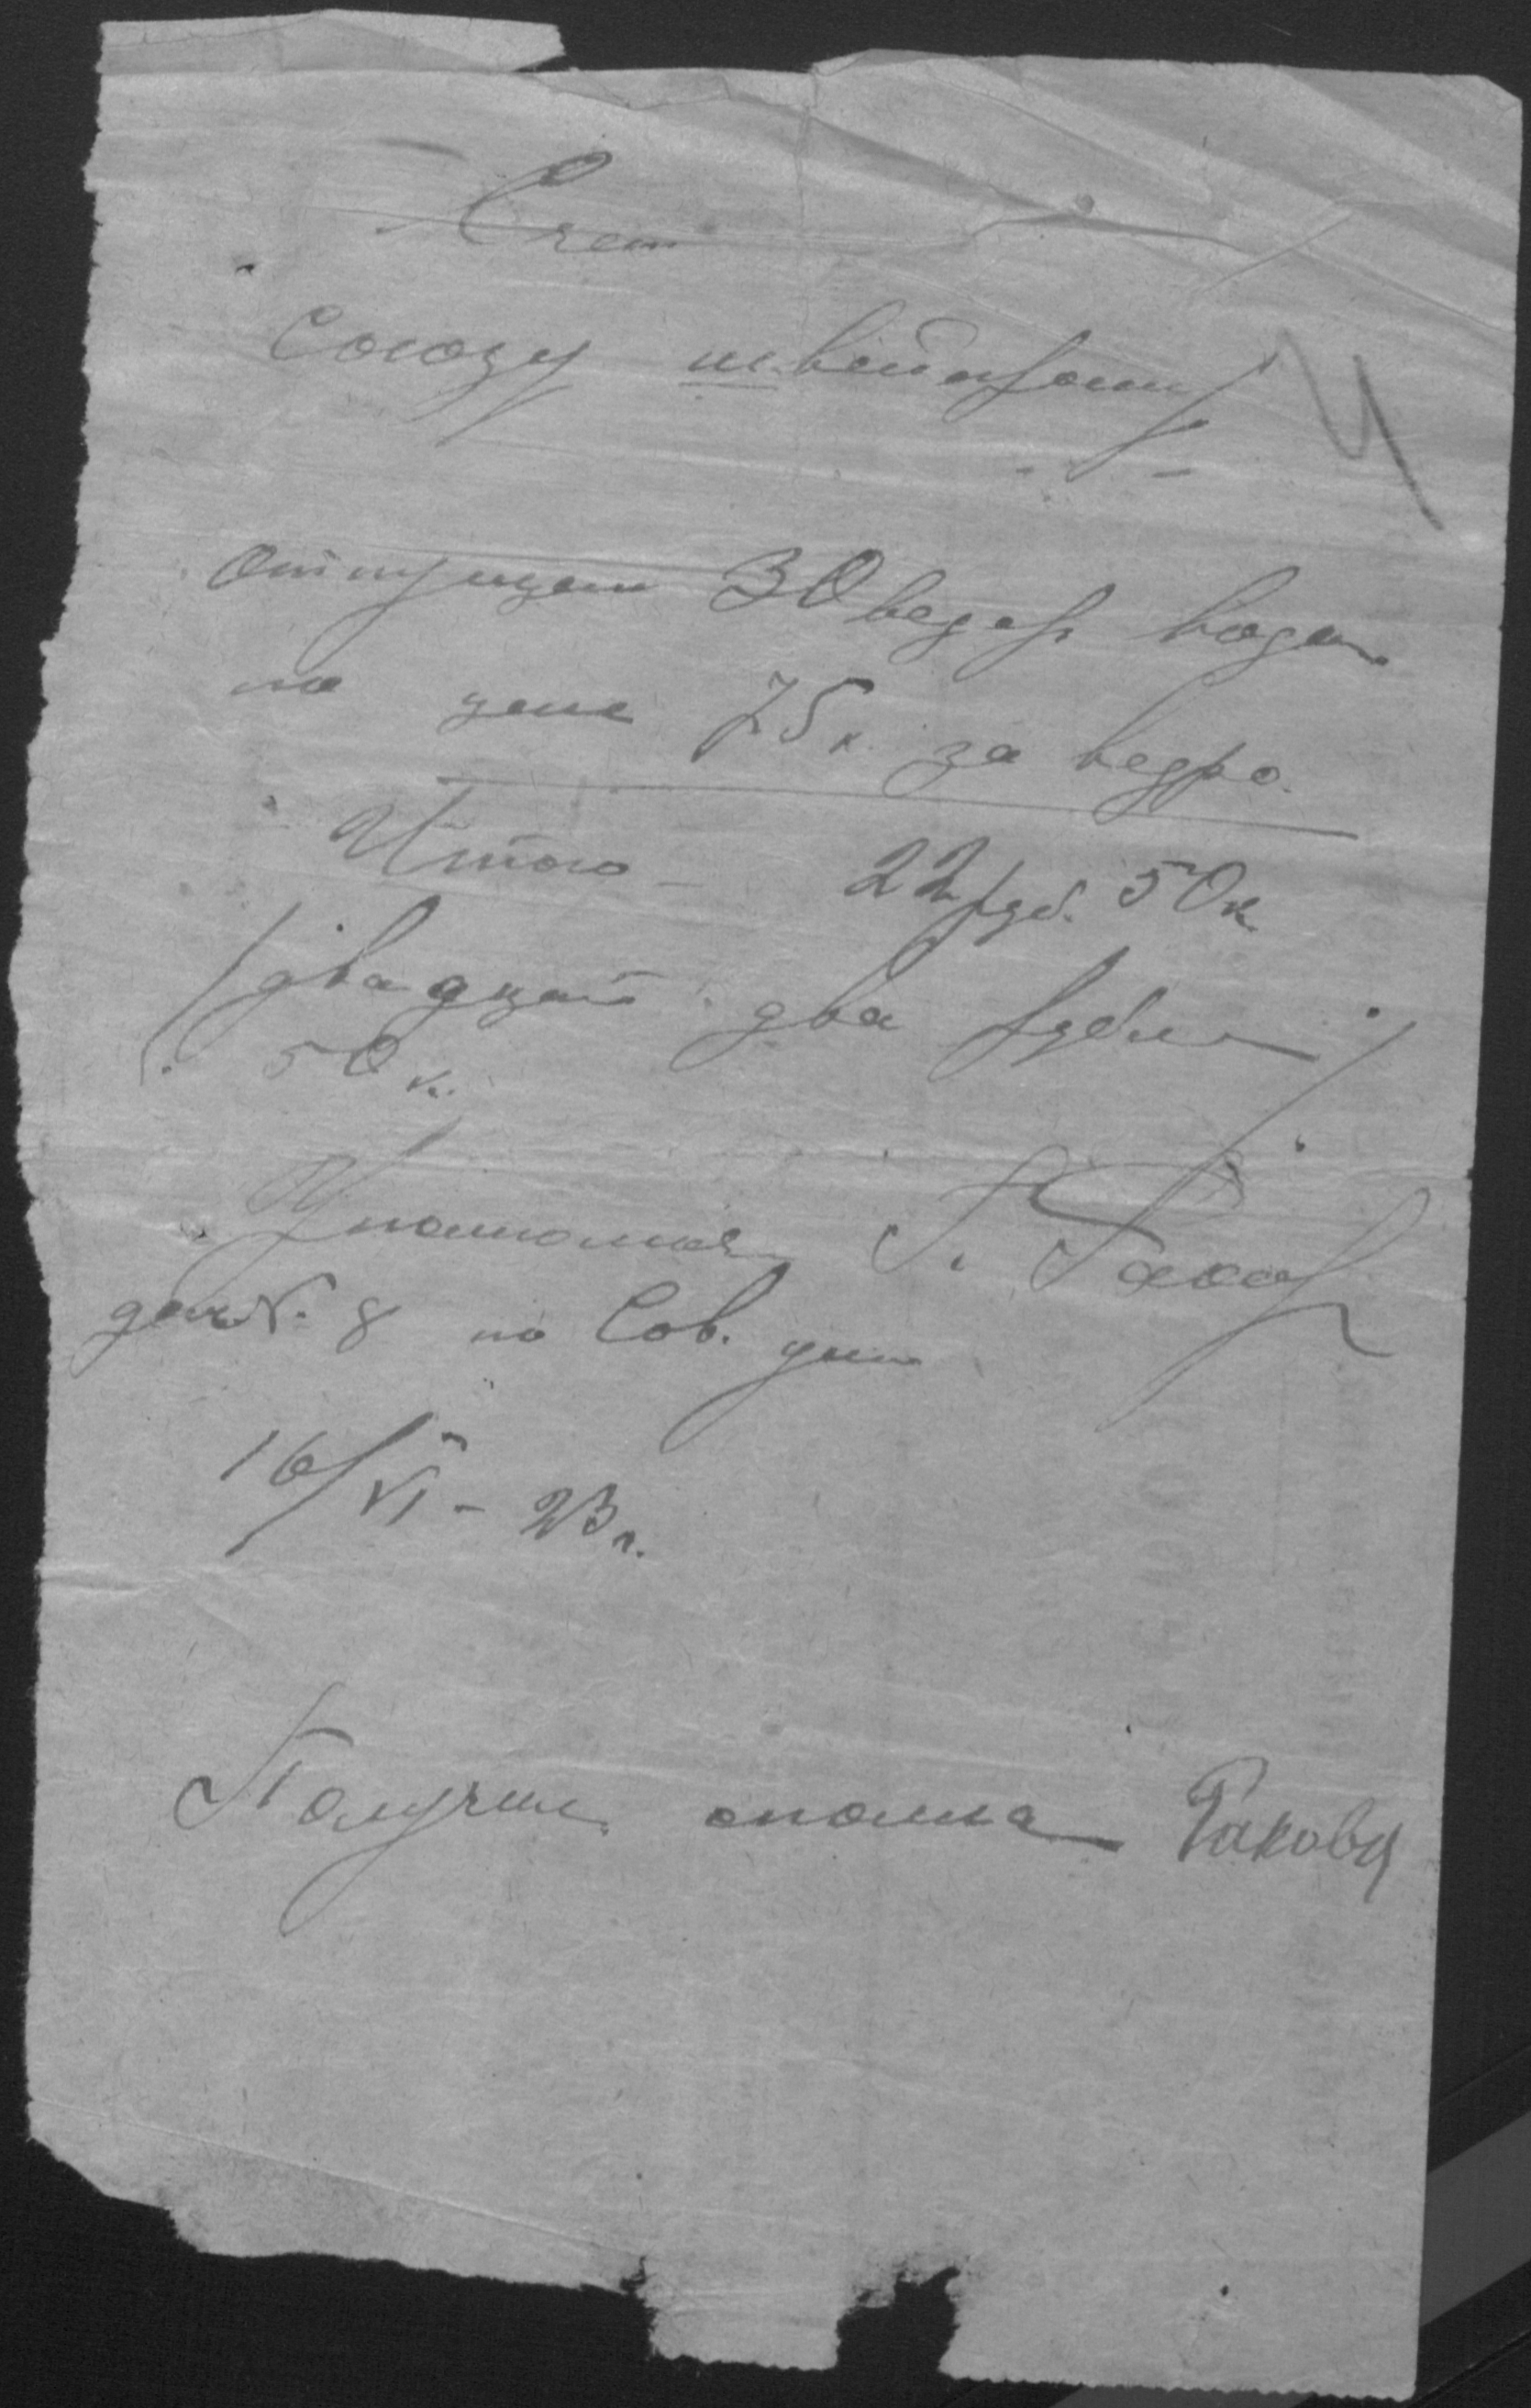 Счет
Союзу швейпром
4
Отпущен 30 ведер воды
по цене 75 к. за ведро.
Итого – 22 руб. 50 к
(двадцать два рубля)
50 к.
Уполномоч. Г. Раков
дом № 8 по Сов. ули
16/VI – 23 г.
Получил сполна Ракова